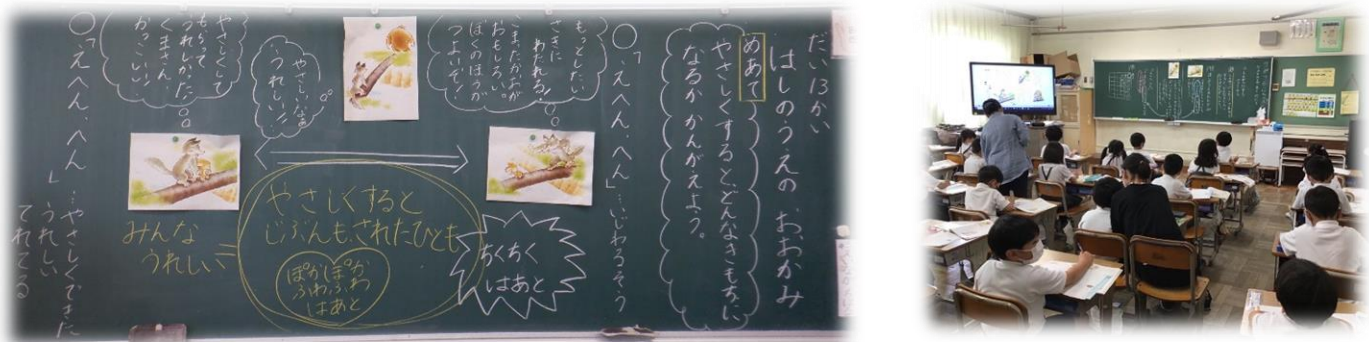 だい13かい
はしのうえの おおかみ
めあて
やさしくするとどんなきもちに
なるかかんがえよう。
○「えへん、へん」…いじわるそう
もっとしたい
さきに
わたれる!
こまたかおが
おもしろい。
ぼくのほうが
つよいぞ!
ちくちく
はあと
やさしいなぁ
うれしい!!
やさしくすると
じぶんも、されたひとも
ぽかぽか
ふわふわ
はあと
=
みんな
うれしい
やさしくして
もらって
うれしかった。
くまさん、
かっこいい!
○「えへん、へん」…やさしくできた
うれしい
てれてる